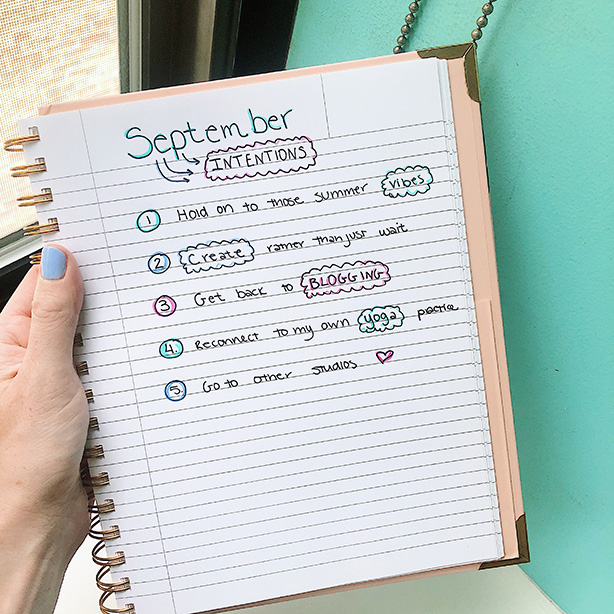 September
INTENTIONS
1 Hold on to those summer vibes
2 Create rather than just wait
3 Get back to BLOGGING
4. Reconnect to my own yoga practice
5. Go to other studios